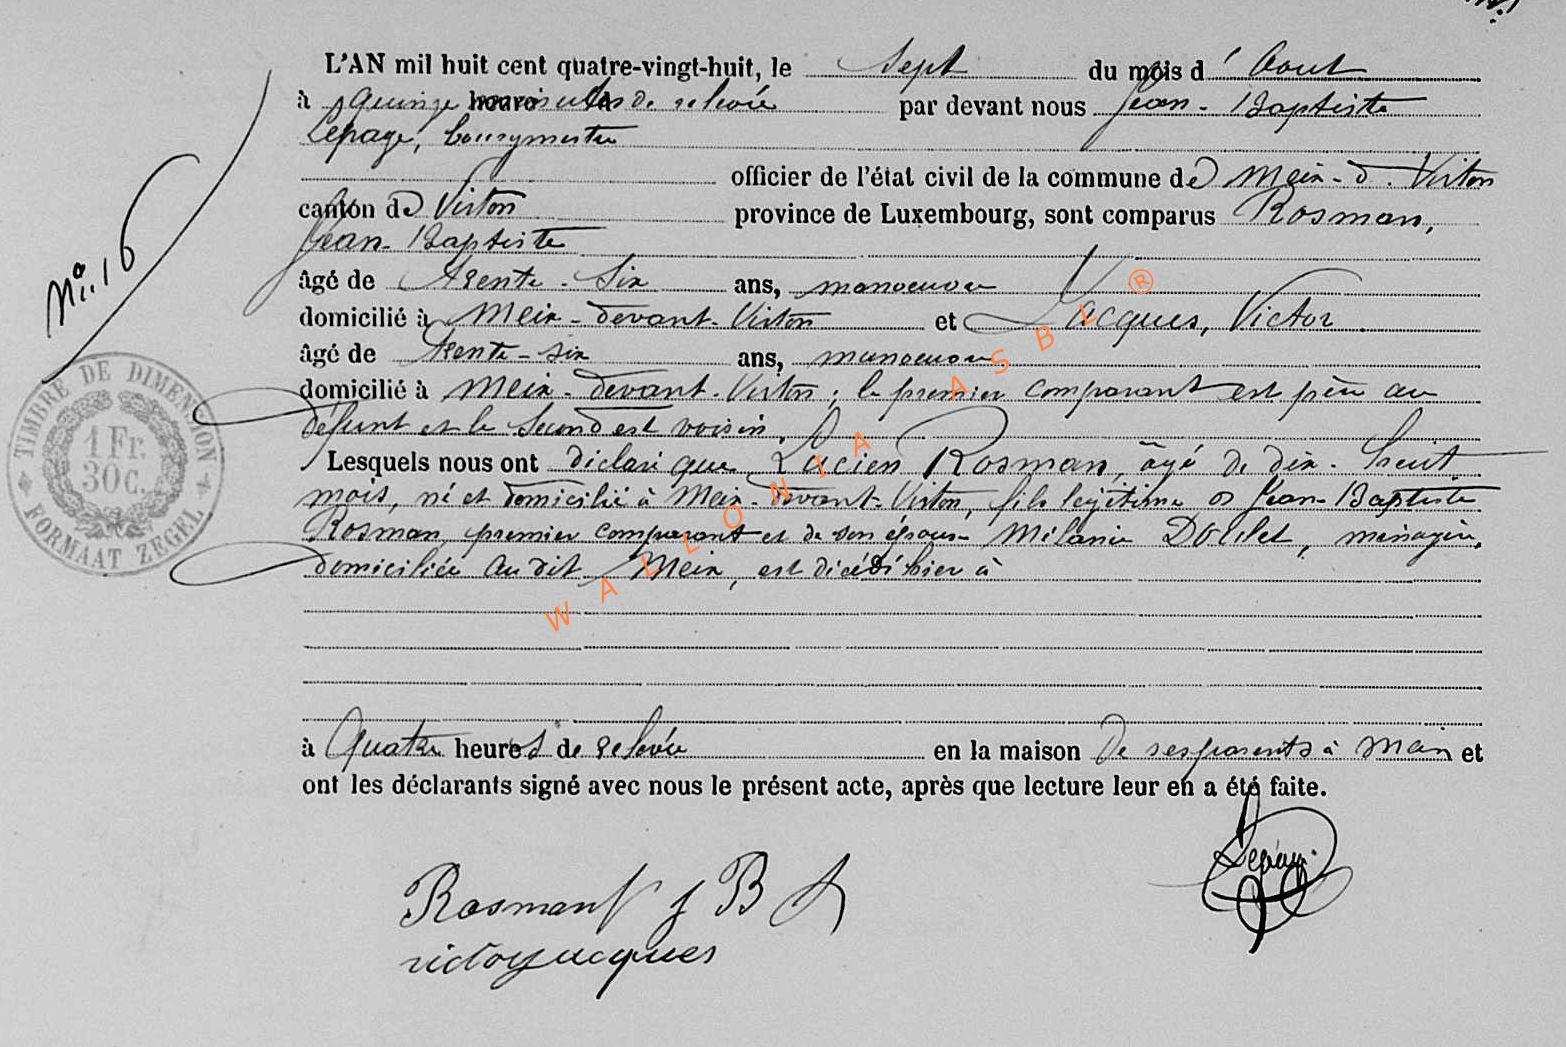 L'AN mil huit cent quatre-vingt-huit, le Sept du mois d'Aout
à quinze minutes de relevée par devant nous Jean-Baptiste
Lepage, bourgmestre
officier de l'état civil de la commune de Meix-d-Virton
canton de Virton province de Luxembourg, sont comparus Rosman,
Jean-Baptiste
âgé de trente-six ans, manoeuvre
domicilié à Meix-devant-Virton et Jacques, Victor
âgé de trente-six ans, manoeuvre
domicilié à Meix-devant-Virton; le premier comparant est père au
défunt et le second est voisin.
Lesquels nous ont déclaré que Lucien Rosman, âgé de dix-huit
mois, né et domicilié à Meix-devant-Virton, fils légitime de Jean-Baptiste
Rosman premier comparant et de son épouse Mélanie, ménagère,
domiciliée audit Meix, est décédé hier à
à quatre heures de relevée en la maison de ses parents à Meix et
ont les déclarants signé avec nous le présent acte, après que lecture leur en a été faite.
Rosman J B
victor jacques
Lepage
No. 16
TIMBRE DE DIMENSION
1 Fr.
30 C.
FORMAAT ZEGEL
WALLONIA ASBL ®